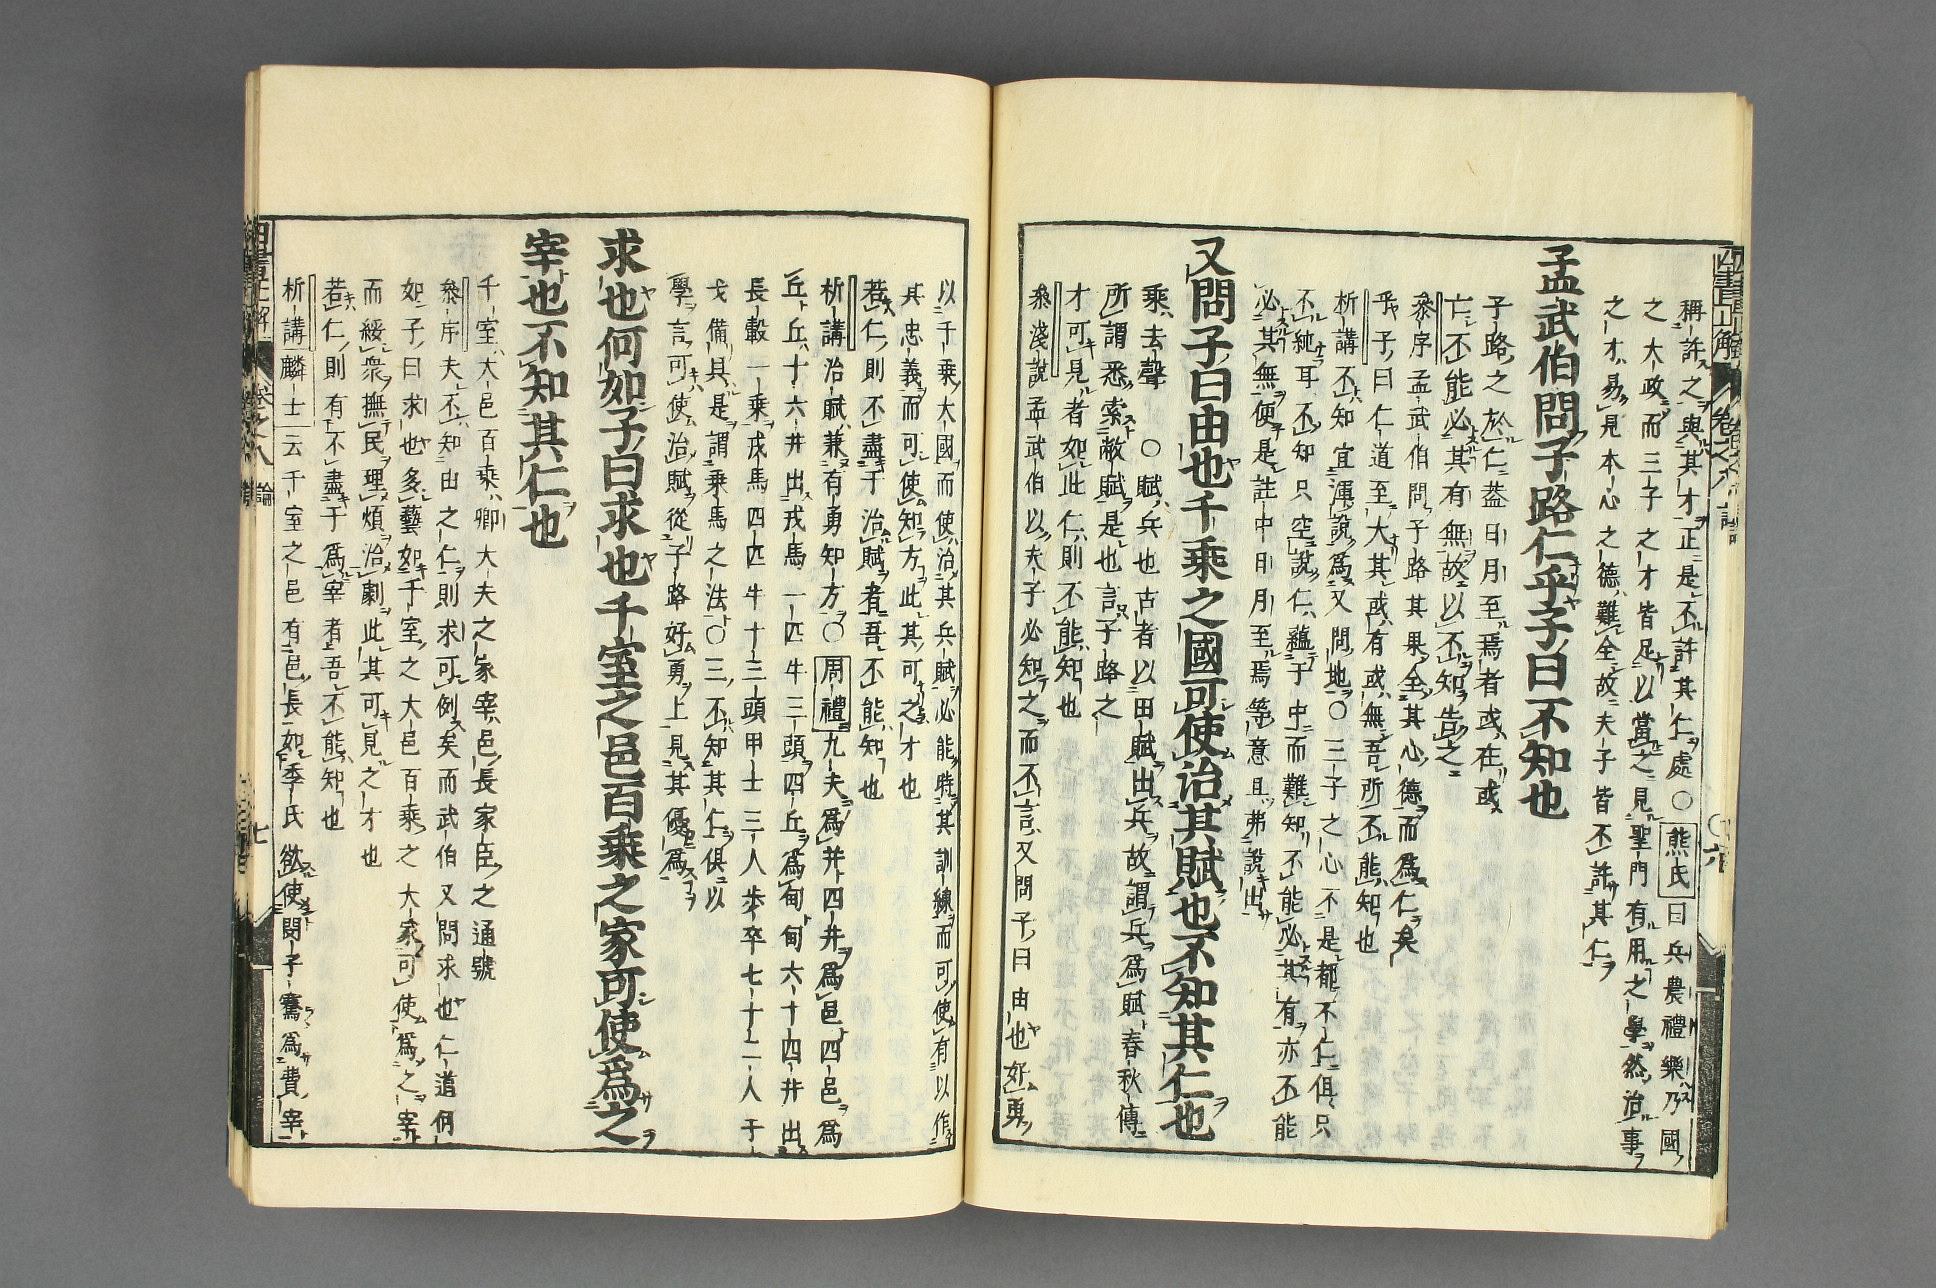 稱許之與其才正是不許其仁處〇熊氏曰兵農禮樂乃國
之大政而三子之才皆足以當之見聖門有用之學然治事
之才易見本心之德難全故夫子皆不許其仁
孟武伯問子路仁乎子曰不知也
子路之於仁蓋日月至焉者或在或
亡不能必其有無故以不知告之
參序孟武伯問子路其果全其心德而爲仁矣
乎子曰仁道至大其或有或無吾所不能知也
析講不知宜渾說爲又問地〇三子之心不是都不仁俱只
不純耳不知只空說仁蘊于中而難知不能必其有亦不能
必其無便是註中日月至焉等意且弗說出
又問子曰由也千乘之國可使治其賦也不知其仁也
乘去聲〇賦兵也古者以田賦出兵故謂兵爲賦春秋傳
所謂悉索敝賦是也言子路之
才可見者如此仁則不能知也
參淺說孟武伯以夫子必知之而不言又問子曰由也好勇
以千乘大國而使治其兵賦必能時其訓練而可使有以作
其忠義而可使知方此其可之才也
若仁則不盡于治賦者吾不能知也
析講治賦兼有勇知方〇周禮九夫爲井四井爲邑四邑爲
丘丘十六井出戎馬一匹牛三頭四丘爲甸甸六十四井出
長轂一乘戎馬四匹牛十二頭甲士三人步卒七十二人干
戈備具是謂乘馬之法〇三不知其仁俱以
學言可使治賦從子路好勇上見其優爲
求也何如子曰求也千室之邑百乘之家可使爲之
宰也不知其仁也
千室大邑百乘卿大夫之家宰邑長家臣之通號
參序夫不知由之仁則求可例矣而武伯又問求也仁道何
如子曰求也多藝如千室之大邑百乘之大家可使爲之宰
而綏衆撫民理煩治劇此其可見之才也
若仁則有不盡于爲宰者吾不能知也
析講麟士云千室之邑有邑長如季氏欲使閔子騫爲費宰